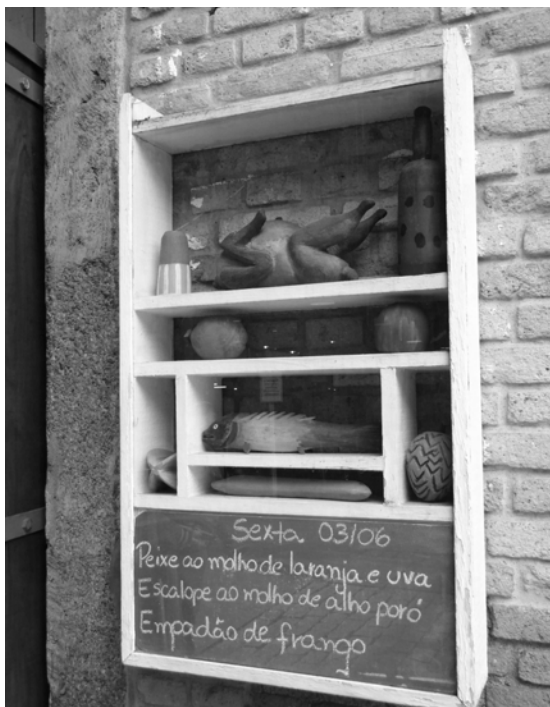 Sexta 03/06
Peixe ao molho de laranja e uva
Escalope ao molho de alho poró
Empadão de frango